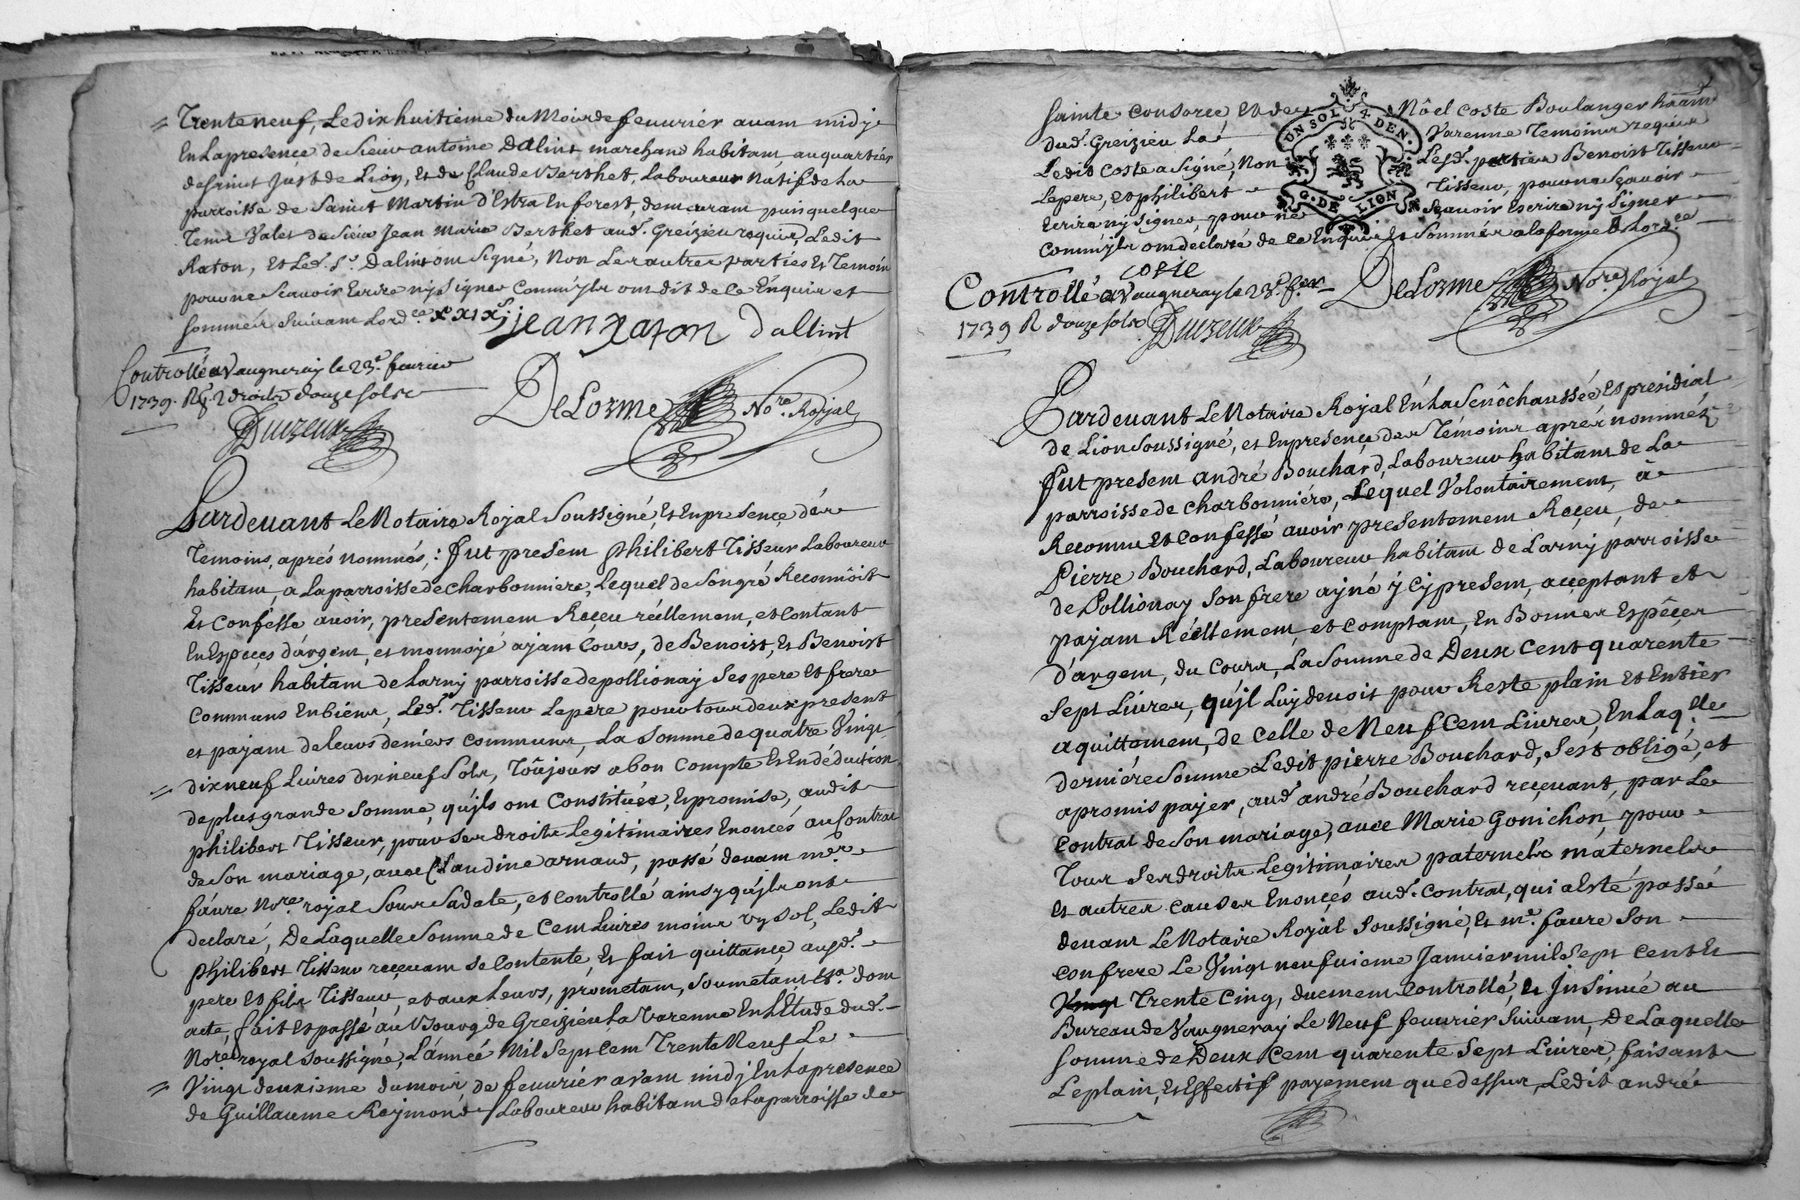 Trente neuf, Le dix huitieme du Mois de feuurier auam midj
En La presence de Sieur antoine Dalint marchand habitam au quartier
de Saint Just de Lion, Et de Claude Berthet, Laboureur Natif de La
parroisse de Saint Martin D'Estra En forest, demeuram puis quelque
Tems Valet de Sieur Jean Marie Berthet aud. Greizieu requis, Ledit
Raton, Et Led. Sr. Dalint om Signé, Non Les autres parties Et Temoin
pour ne Scauoir Ecrire ny Signer Comm'jls om dit de Ce Enquis et
Sommés Suiuam Lordce
jean Raton Dallint
Controllé a Vaugneray le 23e. feurier
1739. R droits douze sols
DeLorme Nore. Royal
Pardeuant Le Notaire Royal Soussigné, Et En presence des
Temoins, aprés nommés, : fut presem philibert Tisseur Laboureur
habitam, a La parroisse de Charbonniere, Lequel de Son gré Reconnoit
Et Confesse auoir, presentemem Reçeu réellemem, et Contant
En Espéces d'argem, et monnoyé ayam Cours, de Benoist, Et Benoist
Tisseur habitam de Larny parroisse de pollionay Ses pere Et frere
Communs En biens, Led. Tisseur Le pere pour tous deux present
et payam de Leurs deniers Communs, La Somme de quatre Vingt
dix neuf Liures dix neuf Sols, Toûjours a bon Compte Et En déduction
de plus grande Somme, qu'jls om Constituée, Et promise, audit
philibert Tisseur, pour Ses droits Legitimaires Enoncés au Contrat
de Son mariage, auec Claudine arnaud, passé deuam mre.
faure Nore. royal Sous Sa date, et Controllé ainsy qu'jls ont
declaré, De Laquelle Somme de Cem Liures moins vn Sol, Ledit
philibert Tisseur reçeuam Se Contente, Et fait quittance, ausd.
pere Et fils Tisseur, et aux Leurs, prometam, Soumetant dom
acte, fait Et passé au Bourg de Greizieu La Varenne En L'Etude dud.
Nore. royal Soussigné, L'année Mil Sept Cem Trente Neuf Le
Vingt deuxieme du mois de feuurier auam midj En La presence
de Guillaume Reymond Laboureur habitam de La parroisse de
Sainte Consorce Et de Nöel Coste Boulanger habitam
UN SOL 4. DEN.
G. DE LION
dud. Greizieu La Varenne Temoins requis
Ledit Coste a Signé, Non Lesd. parties Benoist Tisseur
Le pere, Et philibert Tisseur, pour ne Scauoir
Ecrire ny Signer, pour ne Scauoir Ecrire ny Signer
Comm'jls om declaré de Ce Enquis Et Sommés a la forme de Lordce
coste
Controllé a Vaugneray le 23e. feur
1739 R douze sols
DeLorme Nore. Royal
Pardeuant Le Notaire Royal En La Senêchaussée Et presidial
de Lion Soussigné, et En presence des Temoins aprés nommés
fut presem andré Bouchard, Laboureur habitam de La
parroisse de Charbonniére, Lequel Volontairement, à
Reconnu Et Confessé auoir presentemem Reçeu, de
Pierre Bouchard, Laboureur habitam de Larny parroisse
de Pollionay Son frere ayné j Cy presem, acçeptant et
payam Réellemem, et Comptam, En Bonnes Espêces
d'argem, du Cours, La Somme de Deux Cent quarente
Sept Liures, qu'jl Luy deuoit pour Reste plain et Entier
aquittemem, de Celle de Neuf Cem Liures, En Laqlle
derniére Somme Ledit pierre Bouchard, Sest obligé, et
a promis payer, aud. andré Bouchard reçeuant, par Le
Contrat de Son mariage, auec Marie Gonichon, pour
Tous Ses droits Legitimaires paternels maternels
Et autres Causes Enoncés aud. Contrat, qui a Esté passé
deuam Le Notaire Royal Soussigné, Et me. faure Son
Confrere Le Vingt neufuieme Januier mil Sept Cent Et
Trente Cinq, duemem Controllé, et Jnsinué au
Bureau de Vaugneray Le Neuf feuurier Suiuam, De Laquelle
Somme de Deux Cem quarente Sept Liures, faisant
Le plain, Et Effectif payement que dessus, Ledit andré